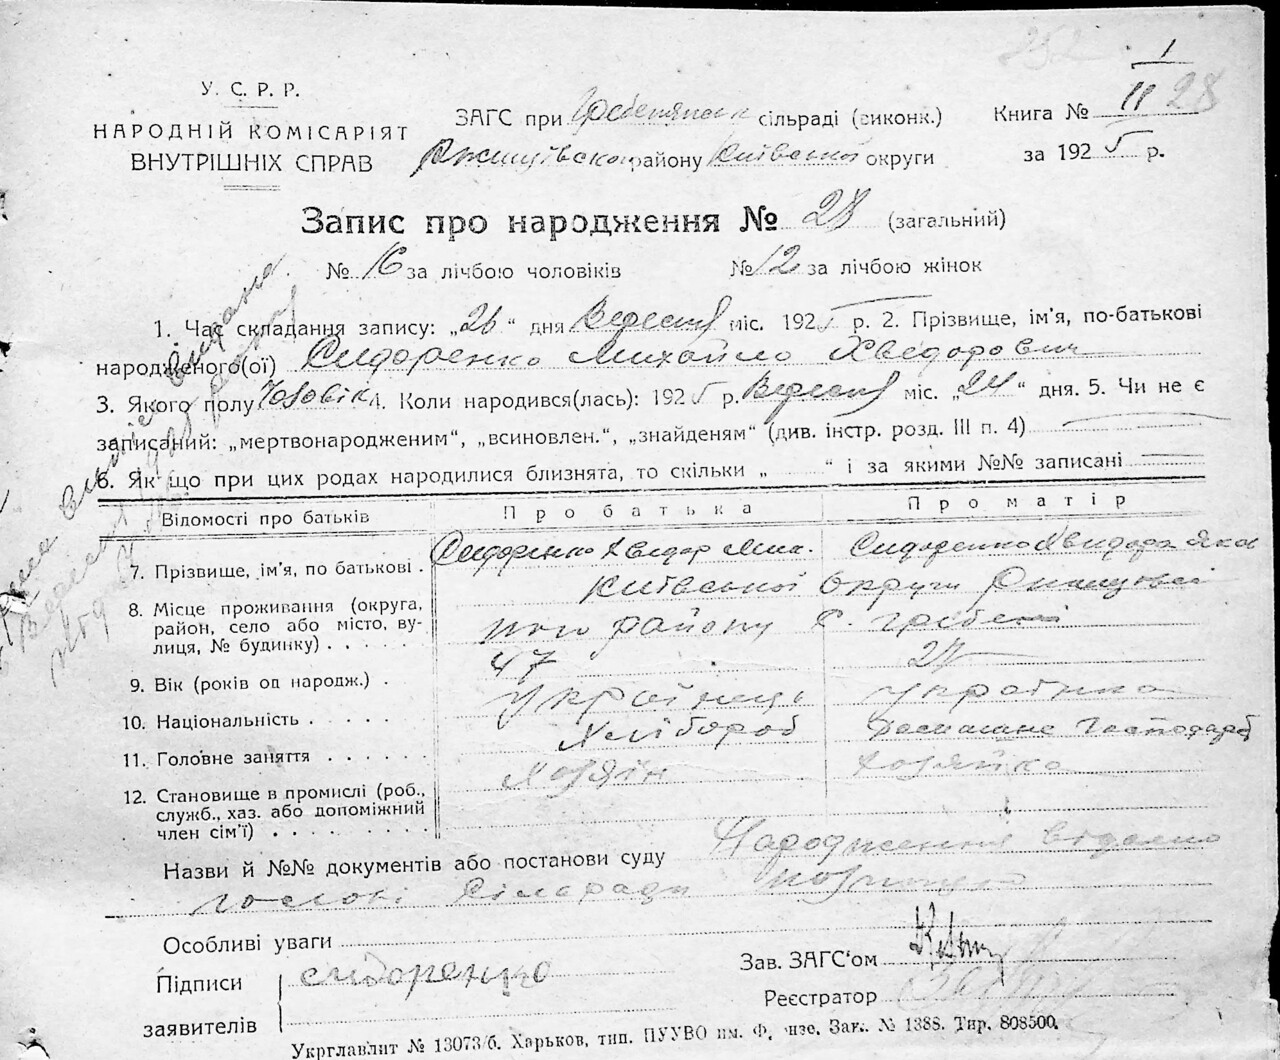 252
1
У. С. Р. Р.
НАРОДНІЙ КОМІСАРІЯТ
ВНУТРІШНІХ СПРАВ
ЗАГС при сільраді (виконк.)
Книга № II 28
району Київської округи
за 1925 р.
Запис про народження № 28 (загальний)
№ 16 за лічбою чоловіків № 12 за лічбою жінок
1. Час складання запису: „26“ дня Вересня міс. 1925 р. 2. Прізвище, ім'я, по-батькові
народженого(ої) Сидоренко Михайло Хведорович
3. Якого полу Чоловік 4. Коли народився(лась): 1925 р. Вересня міс. „24“ дня. 5. Чи не є
записаний: „мертвонародженим“, „всиновлен.“, „знайденям“ (див. інстр. розд. III п. 4)
6. Як що при цих родах народилися близнята, то скільки „ “ і за якими №№ записані
Відомості про батьків Про батька Про матір
7. Прізвище, ім'я, по батькові . Сидоренко Хведор Мих. Сидоренко
8. Місце проживання (округа, район, село або місто, вулиця, № будинку) . . . . . Київської округи
району с. Гребені
9. Вік (років од народж.) . 47 27
10. Національність . . . . Українець Українка
11. Головне заняття . . . . . . Хлібороб Домашне Господарст
12. Становище в промислі (роб., Хозяїн Хозяйка
служб., хаз. або допоміжний
член сім'ї) . . . . . . . .
Назви й №№ документів або постанови суду Народження відомо
голові Сільради
Особливі уваги
Підписи
заявителів
Сидоренко
Зав. ЗАГС‘ом
Реєстратор
Укрглавліт № 13073/б. Харьков, тип. ПУУВО им. Фрунзе. Зак. № 1388. Тир. 808500.